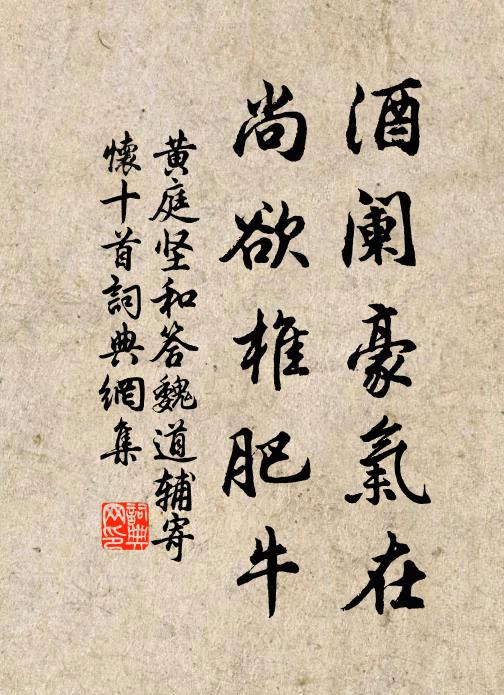 酒阑豪氣在
尚欲椎肥牛
黄庭坚和答魏道辅寄
懷十首詞典網集
詞典
网印